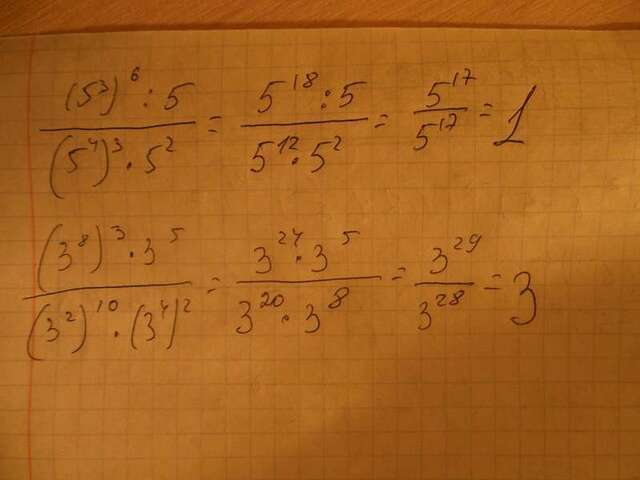 \frac{(5^3)^6 : 5}{(5^4)^3 \cdot 5^2} = \frac{5^{18} : 5}{5^{12} \cdot 5^2} = \frac{5^{17}}{5^{17}} = 1
\frac{(3^8)^3 \cdot 3^5}{(3^2)^{10} \cdot (3^4)^2} = \frac{3^{24} \cdot 3^5}{3^{20} \cdot 3^8} = \frac{3^{29}}{3^{28}} = 3